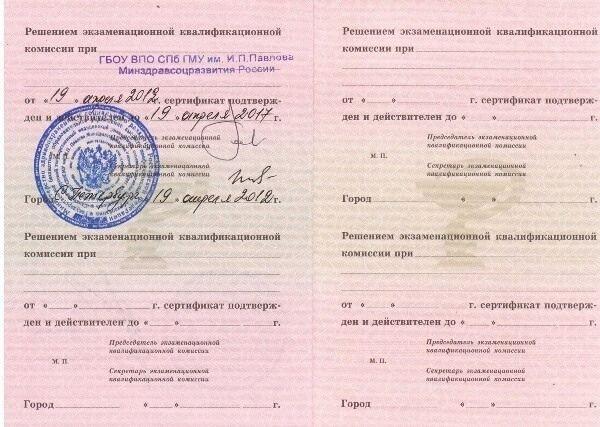 Решением экзаменационной квалификационной
комиссии при
ГБОУ ВПО СПб ГМУ им. И.П.Павлова
Минздравсоцразвития России
от «19» апреля 2012 г. сертификат подтверж-
ден и действителен до «19» апреля 2017 г.
Председатель экзаменационной
квалификационной комиссии
М. П.
Секретарь экзаменационной
квалификационной комиссии
Город С.Петербург «19» апреля 2012 г.
Решением экзаменационной квалификационной
комиссии при
от «    »            г. сертификат подтверж-
ден и действителен до «    »            г.
Председатель экзаменационной
квалификационной комиссии
М. П.
Секретарь экзаменационной
квалификационной комиссии
Город            «    »            г.
Решением экзаменационной квалификационной
комиссии при
от «    »            г. сертификат подтверж-
ден и действителен до «    »            г.
Председатель экзаменационной
квалификационной комиссии
М. П.
Секретарь экзаменационной
квалификационной комиссии
Город            «    »            г.
Решением экзаменационной квалификационной
комиссии при
от «    »            г. сертификат подтверж-
ден и действителен до «    »            г.
Председатель экзаменационной
квалификационной комиссии
М. П.
Секретарь экзаменационной
квалификационной комиссии
Город            «    »            г.